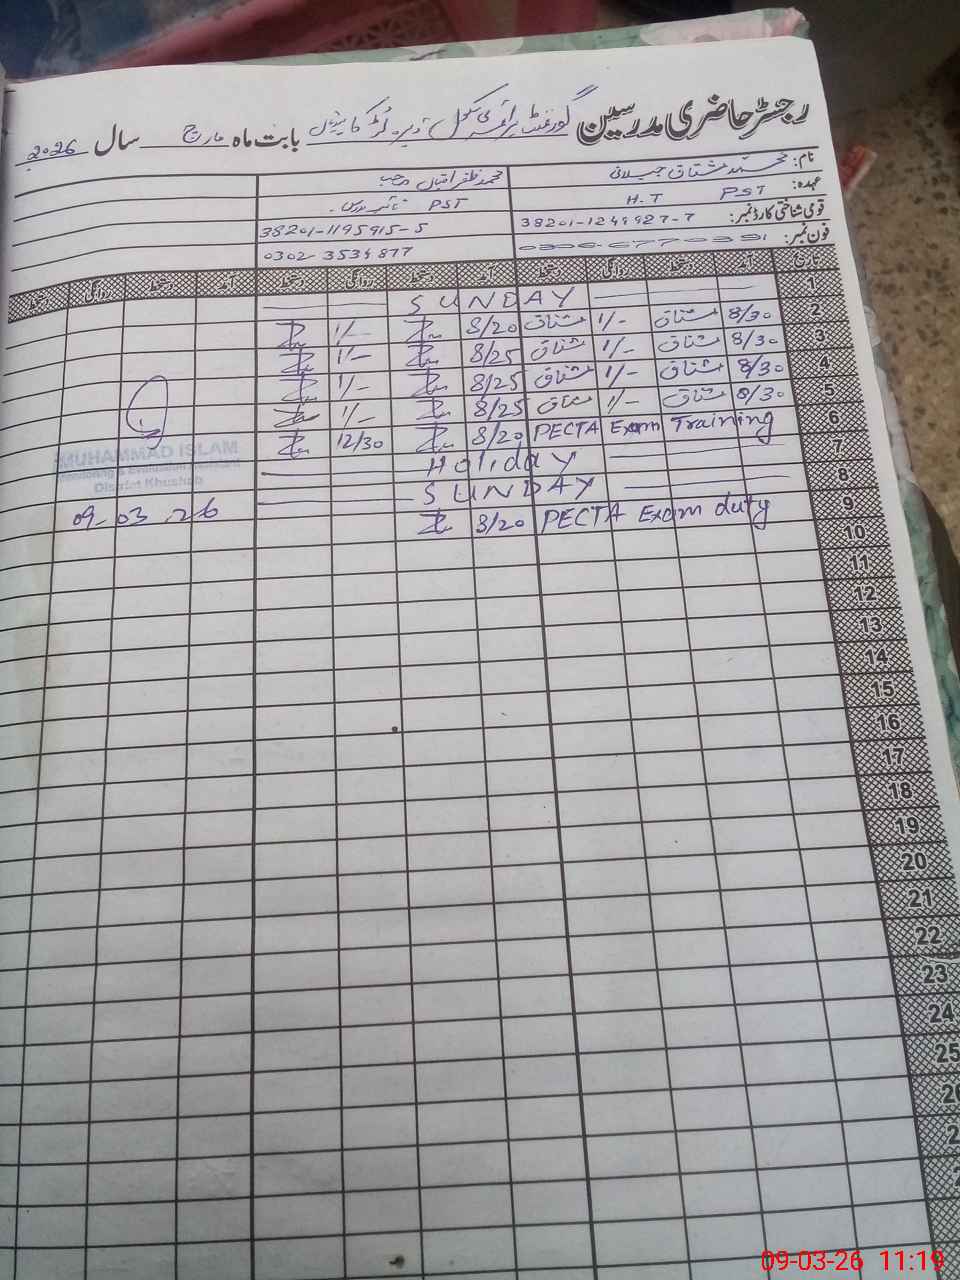 رجسٹر حاضری مدرسین گورنمنٹ پرائمری سکول ڈیرہ بابت ماہ مارچ سال 2026
نام: محمد مشتاق جیلانی محمد ظفر اقبال
عہدہ: PST H.T PST
قومی شناختی کارڈ نمبر: 38201-1249927-7 38201-1195915-5
فون نمبر: 0302-3534877
تاریخ آمد دستخط روانگی دستخط آمد دستخط روانگی دستخط آمد دستخط روانگی دستخط
1 SUNDAY
2 8/30 مشتاق 1/- مشتاق 8/20 1/-
3 8/30 مشتاق 1/- مشتاق 8/25 1/-
4 8/30 مشتاق 1/- مشتاق 8/25 1/-
5 8/30 مشتاق 1/- مشتاق 8/25 1/-
6 PECTA Exam Training 8/20 12/30
7 Holiday
8 SUNDAY
9 PECTA Exam duty 8/20
MUHAMMAD ISLAM
Monitoring & Evaluation Assistant
District Khushab
09-03-26
10
11
12
13
14
15
16
17
18
19
20
21
22
23
24
25
09-03-26 11:19